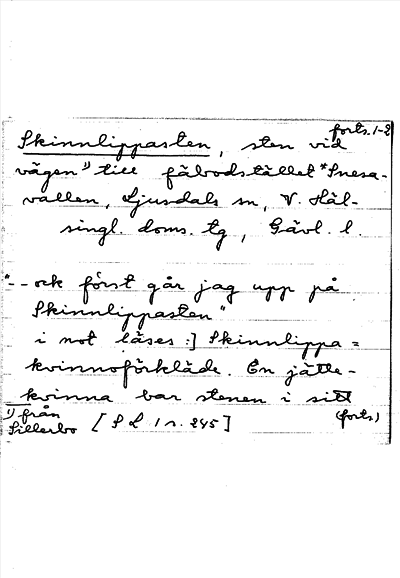 forts. 1-2
Skinnlippasten, sten vid
vägen ¹) till fäbodstället *Snesa-
vallen, Ljusdals sn, V. Häl-
singl. doms. tg, Gävl. l.
"-- och först går jag upp på
Skinnlippasten"
i not läses:] Skinnlippa =
kvinnoförkläde. En jätte-
kvinna bar stenen i sitt
¹) från
Sillerbo [S L 1 s. 245] (forts.)